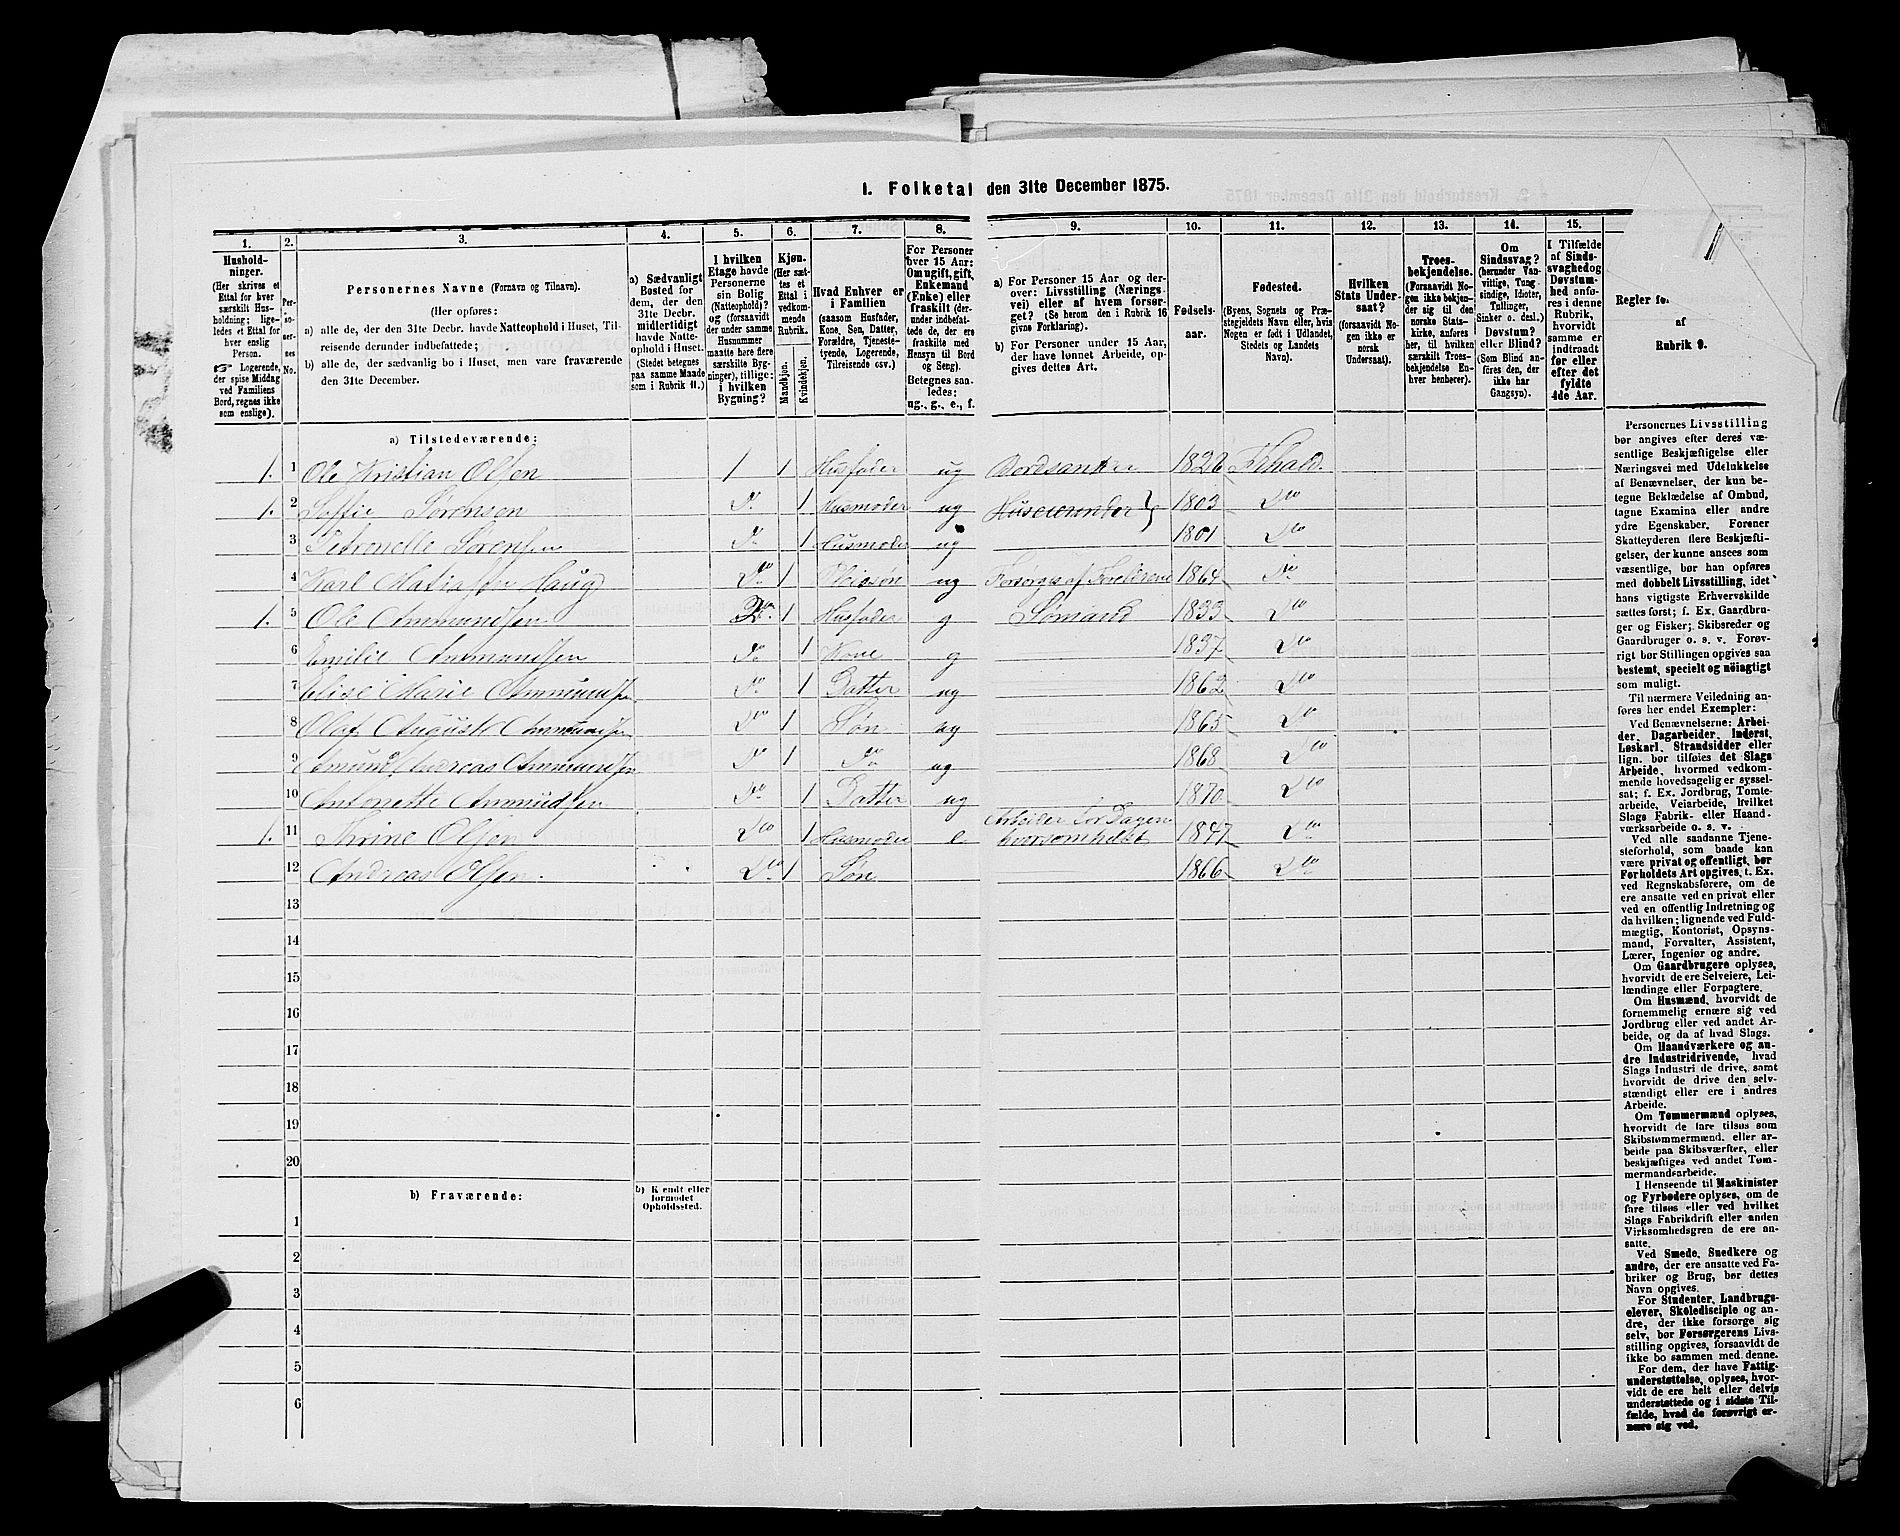 I. Folketal den 31te December 1875.
1. 2. 3. 4. 5. 6. 7. 8. 9. 10. 11. 12. 13. 14. 15.
Hushold-
ninger.
(Her skrives et
Ettal for hver
særskilt Hus-
holdning; lige-
ledes et Ettal for
hver enslig
Person.
☞ Logerende,
der spise Middag
ved Familiens
Bord, regnes ikke
som enslige).
Per-
so-
ner-
nes
No.
Personernes Navne (Fornavn og Tilnavn).
(Her opføres:
a) alle de, der den 31te Decbr. havde Natteophold i Huset, Til-
reisende derunder indbefattede;
b) alle de, der sædvanlig bo i Huset, men vare fraværende
den 31te December.
a) Sædvanligt
Bosted for
dem, der den
31te Decbr.
midlertidigt
havde Natte-
ophold i Huset.
(Stedet betegnes
paa samme Maade
som i Rubrik 11.)
I hvilken
Etage havde
Personerne
sin Bolig
(Natteophold)?
og (forsaavidt
der under samme
Husnummer
maatte høre flere
særskilte Byg-
ninger), tillige:
i hvilken
Bygning?
Kjøn.
(Her sæt-
tes et
Ettal i
vedkom-
mende
Rubrik.
Mandkjøn.
Kvindekjøn.
Hvad Enhver er
i Familien
(saasom Husfader,
Kone, Søn, Datter,
Forældre, Tjeneste-
tyende, Logerende,
Tilreisende osv.)
For Personer
over 15 Aar:
Om ugift, gift,
Enkemand
(Enke) eller
fraskilt (der-
under indbefat-
tede de, der ere
fraskilte med
Hensyn til Bord
og Seng).
Betegnes saa-
ledes:
ug., g., e., f.
a) For Personer 15 Aar og der-
over: Livsstilling (Nærings-
vei) eller af hvem forsør-
get? (Se herom den i Rubrik 16
givne Forklaring).
b) For Personer under 15 Aar,
der have lønnet Arbeide, op-
gives dettes Art.
Fødsels-
aar.
Fødested.
(Byens, Sognets og Præ-
stegjeldets Navn eller, hvis
Nogen er født i Udlandet,
Stedets og Landets
Navn).
Hvilken
Stats Under-
saat?
(forsaavidt No-
gen ikke er
norsk
Undersaat).
Troes-
bekjendelse.
(Forsaavidt No-
gen ikke bekjen-
der sig til den
norske Stats-
kirke, anføres
her, til hvilken
særskilt Troes-
bekjendelse En-
hver henhører).
Om
Sindssvag?
(herunder Van-
vittige, Tung-
sindige, Idioter,
Tullinger,
Sinker o. desl.)
Døvstum?
eller Blind?
(Som Blind an-
føres den, der
ikke har
Gangsyn).
I Tilfælde
af Sinds-
svaghed og
Døvstum-
hed anfø-
res i denne
Rubrik,
hvorvidt
samme er
indtraadt
før eller
efter det
fyldte
4de Aar.
Regler for
af
Rubrik 9.
a) Tilstedeværende:
1. 1 Ole Kristian Olsen 1 1 Husfader ug 1828 Frhald.
1. 2 Soffie Sørensen Do 1 Husmoder ug Huseierinder } 1803 Do
3 Petronelle Sørensen Do 1 Husmoder ug 1801 Do
4 Karl Matiassen Haug Do 1 Pleiesøn ug Forsørges af Forældrene 1864 Do
1. 5 Ole Ammundsen 1 Husfader g Sømand 1833 Do
6 Emilie Ammundsen Do 1 Kone g 1837 Do
7 Elise Marie Ammundsen Do 1 Datter ug 1862 Do
8 Olaf August Ammundsen Do 1 Søn ug 1865 Do
9 Emund Andreas Ammundsen Do 1 Do ug 1868 Do
10 Antonette Ammudsen Do 1 Datter ug 1870 Do
1. 11 Trine Olsen Do 1 Husmoder e. Arbeider for Dagen
hvorsomhelst 1847 Do
12 Andreas Olsen. Do 1 Søn 1866 Do
13
14
15
16
17
18
19
20
b) Fraværende:
b) Kjendt eller
formodet
Opholdssted.
1
2
3
4
5
6
Personernes Livsstilling
bør angives efter deres væ-
sentlige Beskjæftigelse eller
Næringsvei med Udelukkelse
af Benævnelser, der kun be-
tegne Beklædelse af Ombud,
tagne Examina eller andre
ydre Egenskaber. Forener
Skatteyderen flere Beskjæfti-
gelser, der kunne ansees som
væsentlige, bør han opføres
med dobbelt Livsstilling, idet
hans vigtigste Erhvervskilde
sættes først; f. Ex. Gaardbru-
ger og Fisker; Skibsreder og
Gaardbruger o. s. v. Forøv-
rigt bør Stillingen opgives saa
bestemt, specielt og nöiagtigt
som muligt.
Til nærmere Veiledning an-
føres her endel Exempler:
Ved Benævnelserne: Arbei-
der, Dagarbeider, Inderst,
Løskarl, Strandsidder eller
lign. bør tilføies det Slags
Arbeide, hvormed vedkom-
mende hovedsagelig er syssel-
sat; f. Ex. Jordbrug, Tomte-
arbeide, Veiarbeide, hvilket
Slags Fabrik- eller Haand-
værksarbeide o. s. v.
Ved alle saadanne Tjene-
steforhold, som baade kan
være privat og offentligt, bør
Forholdets Art opgives, t. Ex.
ved Regnskabsførere, om de
ere ansatte ved en privat eller
ved en offentlig Indretning og
da hvilken; lignende ved Fuld-
mægtig, Kontorist, Opsyns-
mand, Forvalter, Assistent,
Lærer, Ingeniør og andre.
Om Gaardbrugere oplyses,
hvorvidt de ere Selveiere, Lei-
lændinge eller Forpagtere.
Om Husmænd, hvorvidt de
fornemmelig ernære sig ved
Jordbrug eller ved andet Ar-
beide, og da af hvad Slags.
Om Haandværkere og an-
dre Industridrivende, hvad
Slags Industri de drive, samt
hvorvidt de drive den selv-
stændigt eller ere i andres
Arbeide.
Om Tømmermænd oplyses,
hvorvidt de fare tilsøs som
Skibstømmermænd, eller ar-
beide paa Skibsværfter, eller
beskjæftiges ved andet Tøm-
mermandsarbeide.
I Henseende til Maskinister
og Fyrbødere oplyses, om de
fare tilsøs eller ved hvilket
Slags Fabrikdrift eller anden
Virksomhedsgren de ere an-
satte.
Ved Smede, Snedkere og
andre, der ere ansatte ved Fa-
briker og Brug, bør dettes
Navn opgives.
For Studenter, Landbrugs-
elever, Skoledisciple og an-
dre, der ikke forsørge sig
selv, bør Forsørgerens Livs-
stilling opgives, forsaavidt de
ikke bo sammen med denne.
For dem, der have Fattig-
understøttelse, oplyses, hvor-
vidt de ere helt eller delvis
understøttede og i sidste Til-
fælde, hvad de forøvrigt er-
nære sig ved.